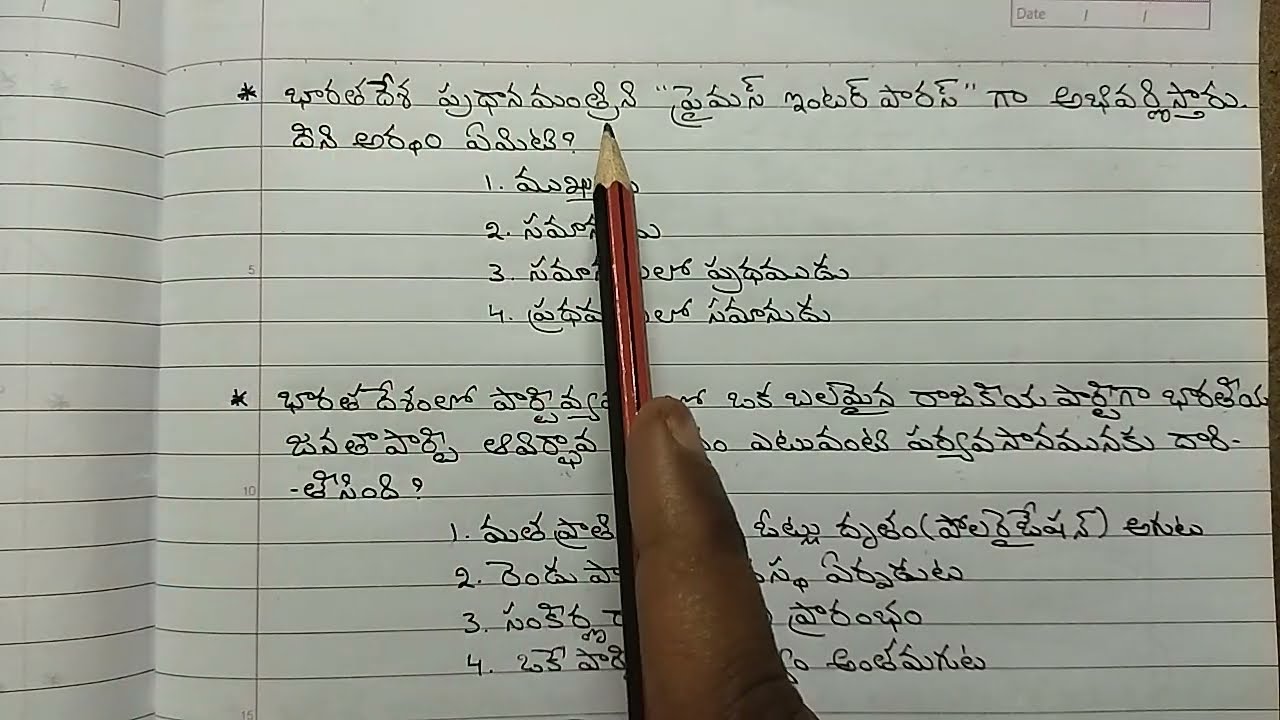 Date / /
* భారతదేశ ప్రధానమంత్రిని "ప్రైమస్ ఇంటర్ పారస్" గా అభివర్ణిస్తారు.
దీని అర్థం ఏమిటి?
1.
2.
3. ప్రథముడు
4. సమానుడు
5
* భారతదేశంలో ఒక బలమైన రాజకీయ పార్టీగా భారతీయ
జనతాపార్టీ ఎటువంటి పర్యవసానమునకు దారి-
10 -తీసింది?
1. మత ఓట్లు ధృతం(పోలరైజేషన్) అగుట
2. రెండు ఏర్పడుట
3. సంకీర్ణ ప్రారంభం
4. ఒకే అంతమగుట
15